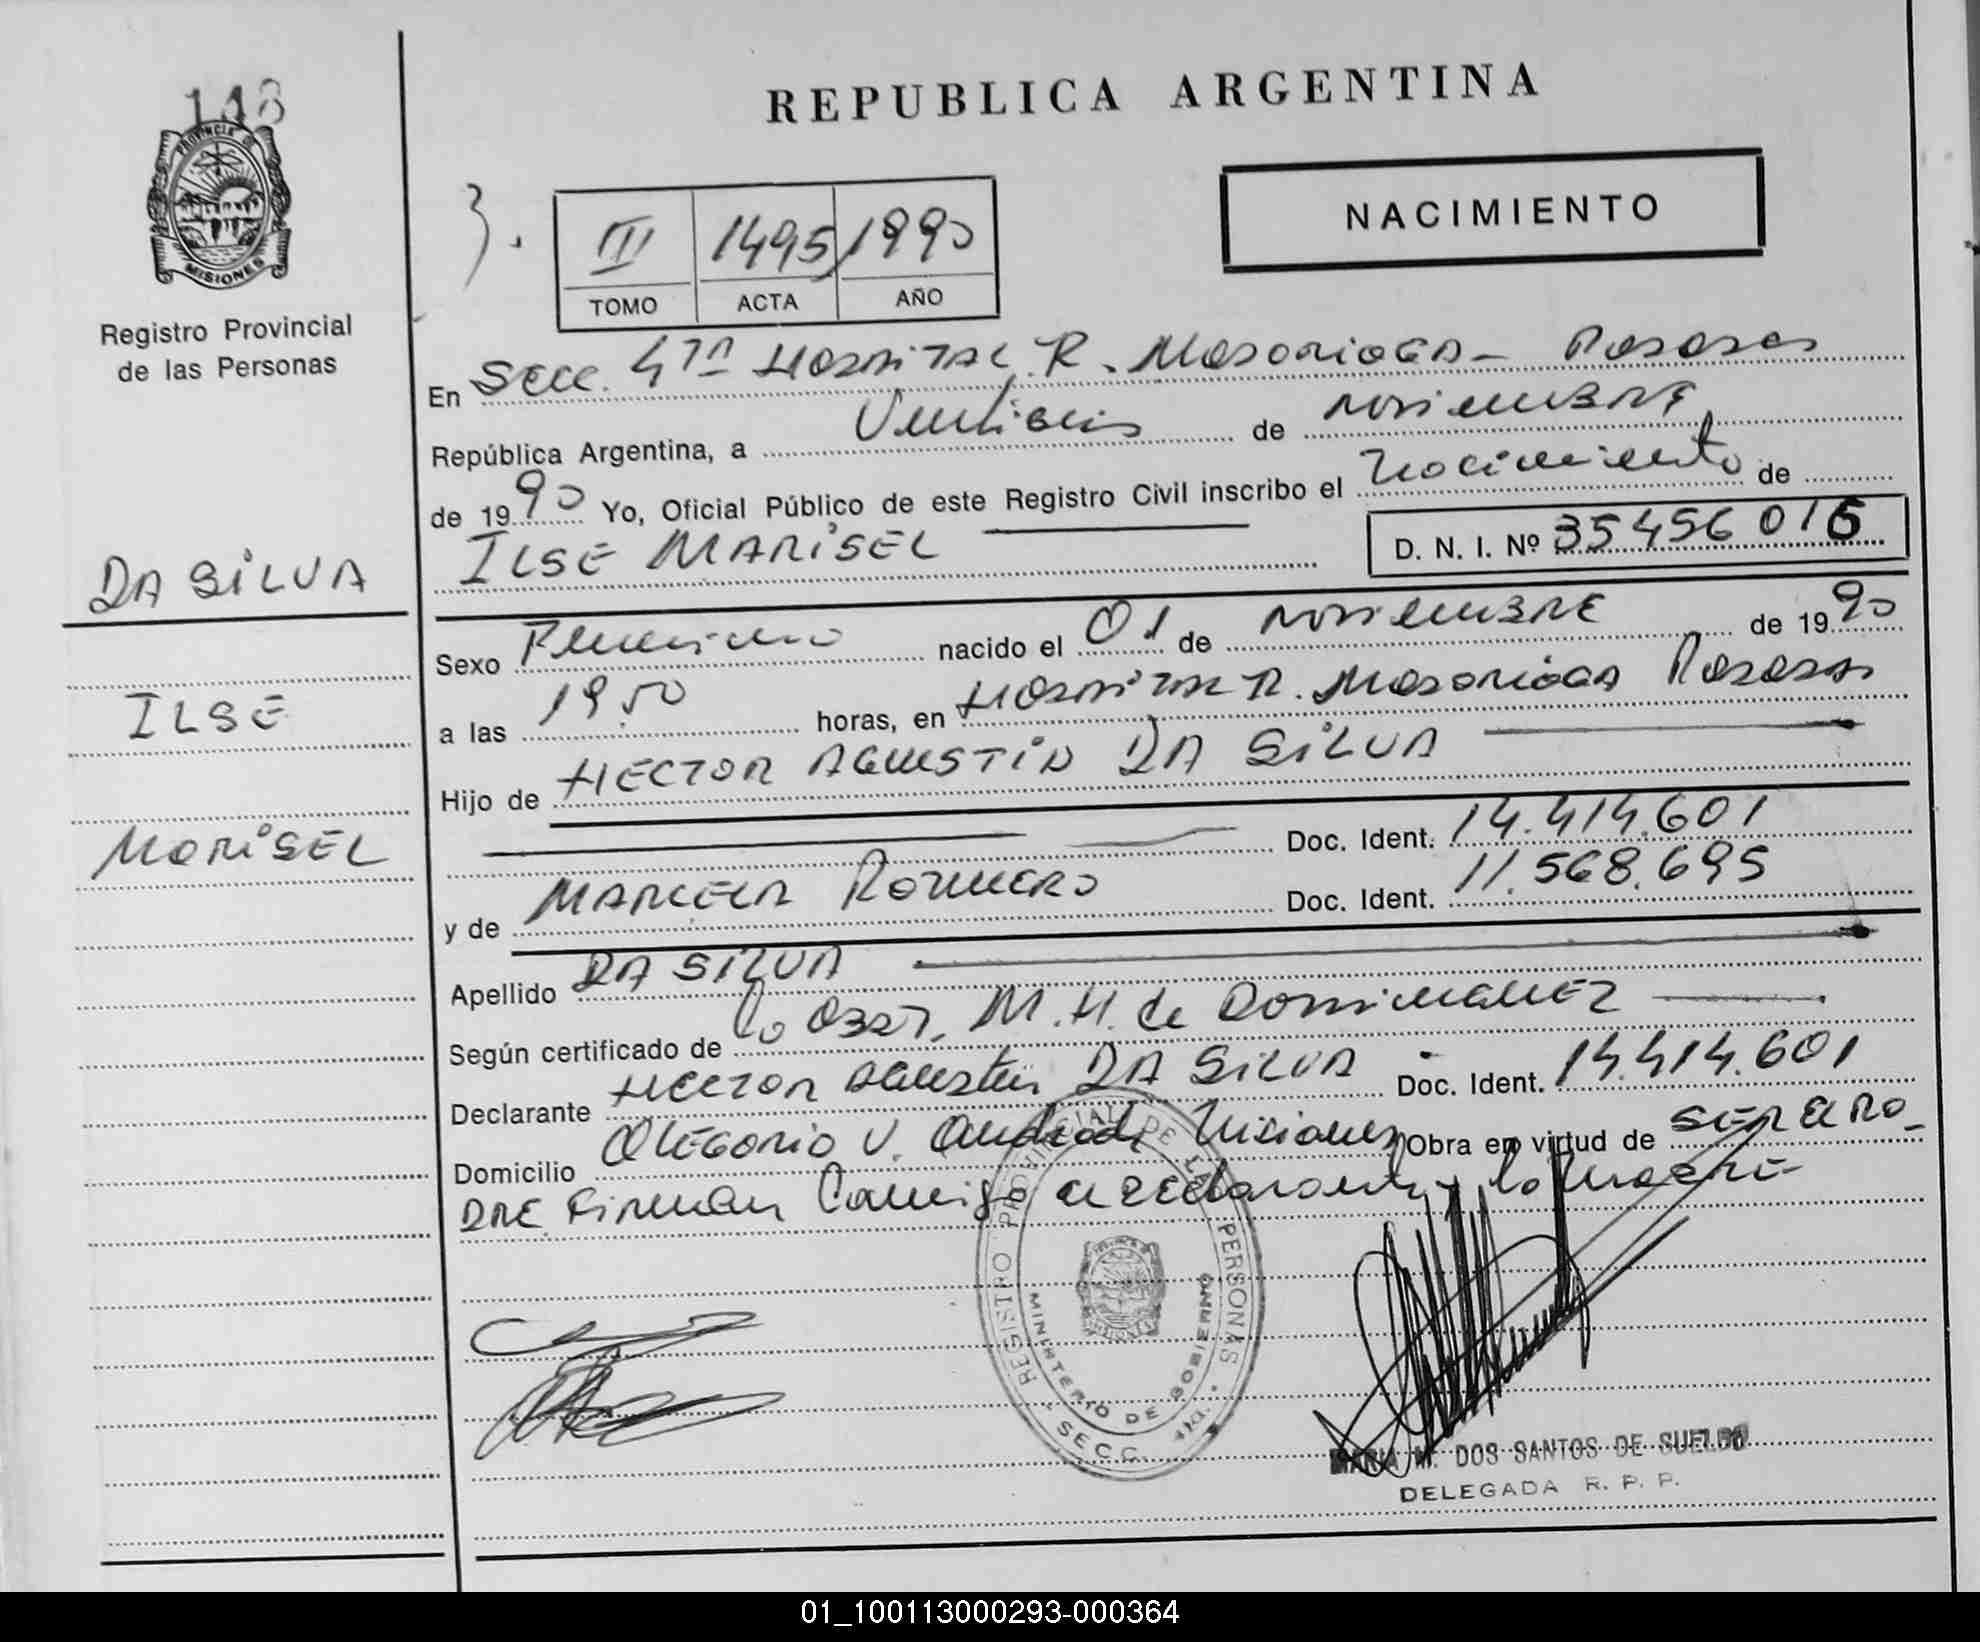 148
REPUBLICA ARGENTINA
PROVINCIA DE
MISIONES
Registro Provincial
de las Personas
NACIMIENTO
3.
III 1495 1990
TOMO ACTA AÑO
En Secc. 4ta Hospital R. Madariaga - Posadas
República Argentina, a Veintiseis de noviembre
de 1990 Yo, Oficial Público de este Registro Civil inscribo el nacimiento de
ILSE MARISEL
D. N. I. Nº 35456016
DA SILVA
ILSE
MARISEL
Sexo Femenino nacido el 01 de noviembre de 1990
a las 19.50 horas, en Hospital R. Madariaga Posadas
Hijo de HECTOR AGUSTIN DA SILVA
Doc. Ident. 14.414.601
y de MARCELA ROMERO Doc. Ident. 11.568.695
Apellido DA SILVA
Según certificado de la Obst. M. H. de
Declarante Hector Agustin DA SILVA - Doc. Ident. 14.414.601
Domicilio Olegario V. Andrade, Misiones Obra en virtud de ser el Pa-
dre Firman Conmigo el declarante y la madre -
REGISTRO PROVINCIAL DE LAS PERSONAS
MINISTERIO DE GOBIERNO
SECC. 4ta.
MARIA M. DOS SANTOS DE SUELDO
DELEGADA R. P. P.
01_100113000293-000364